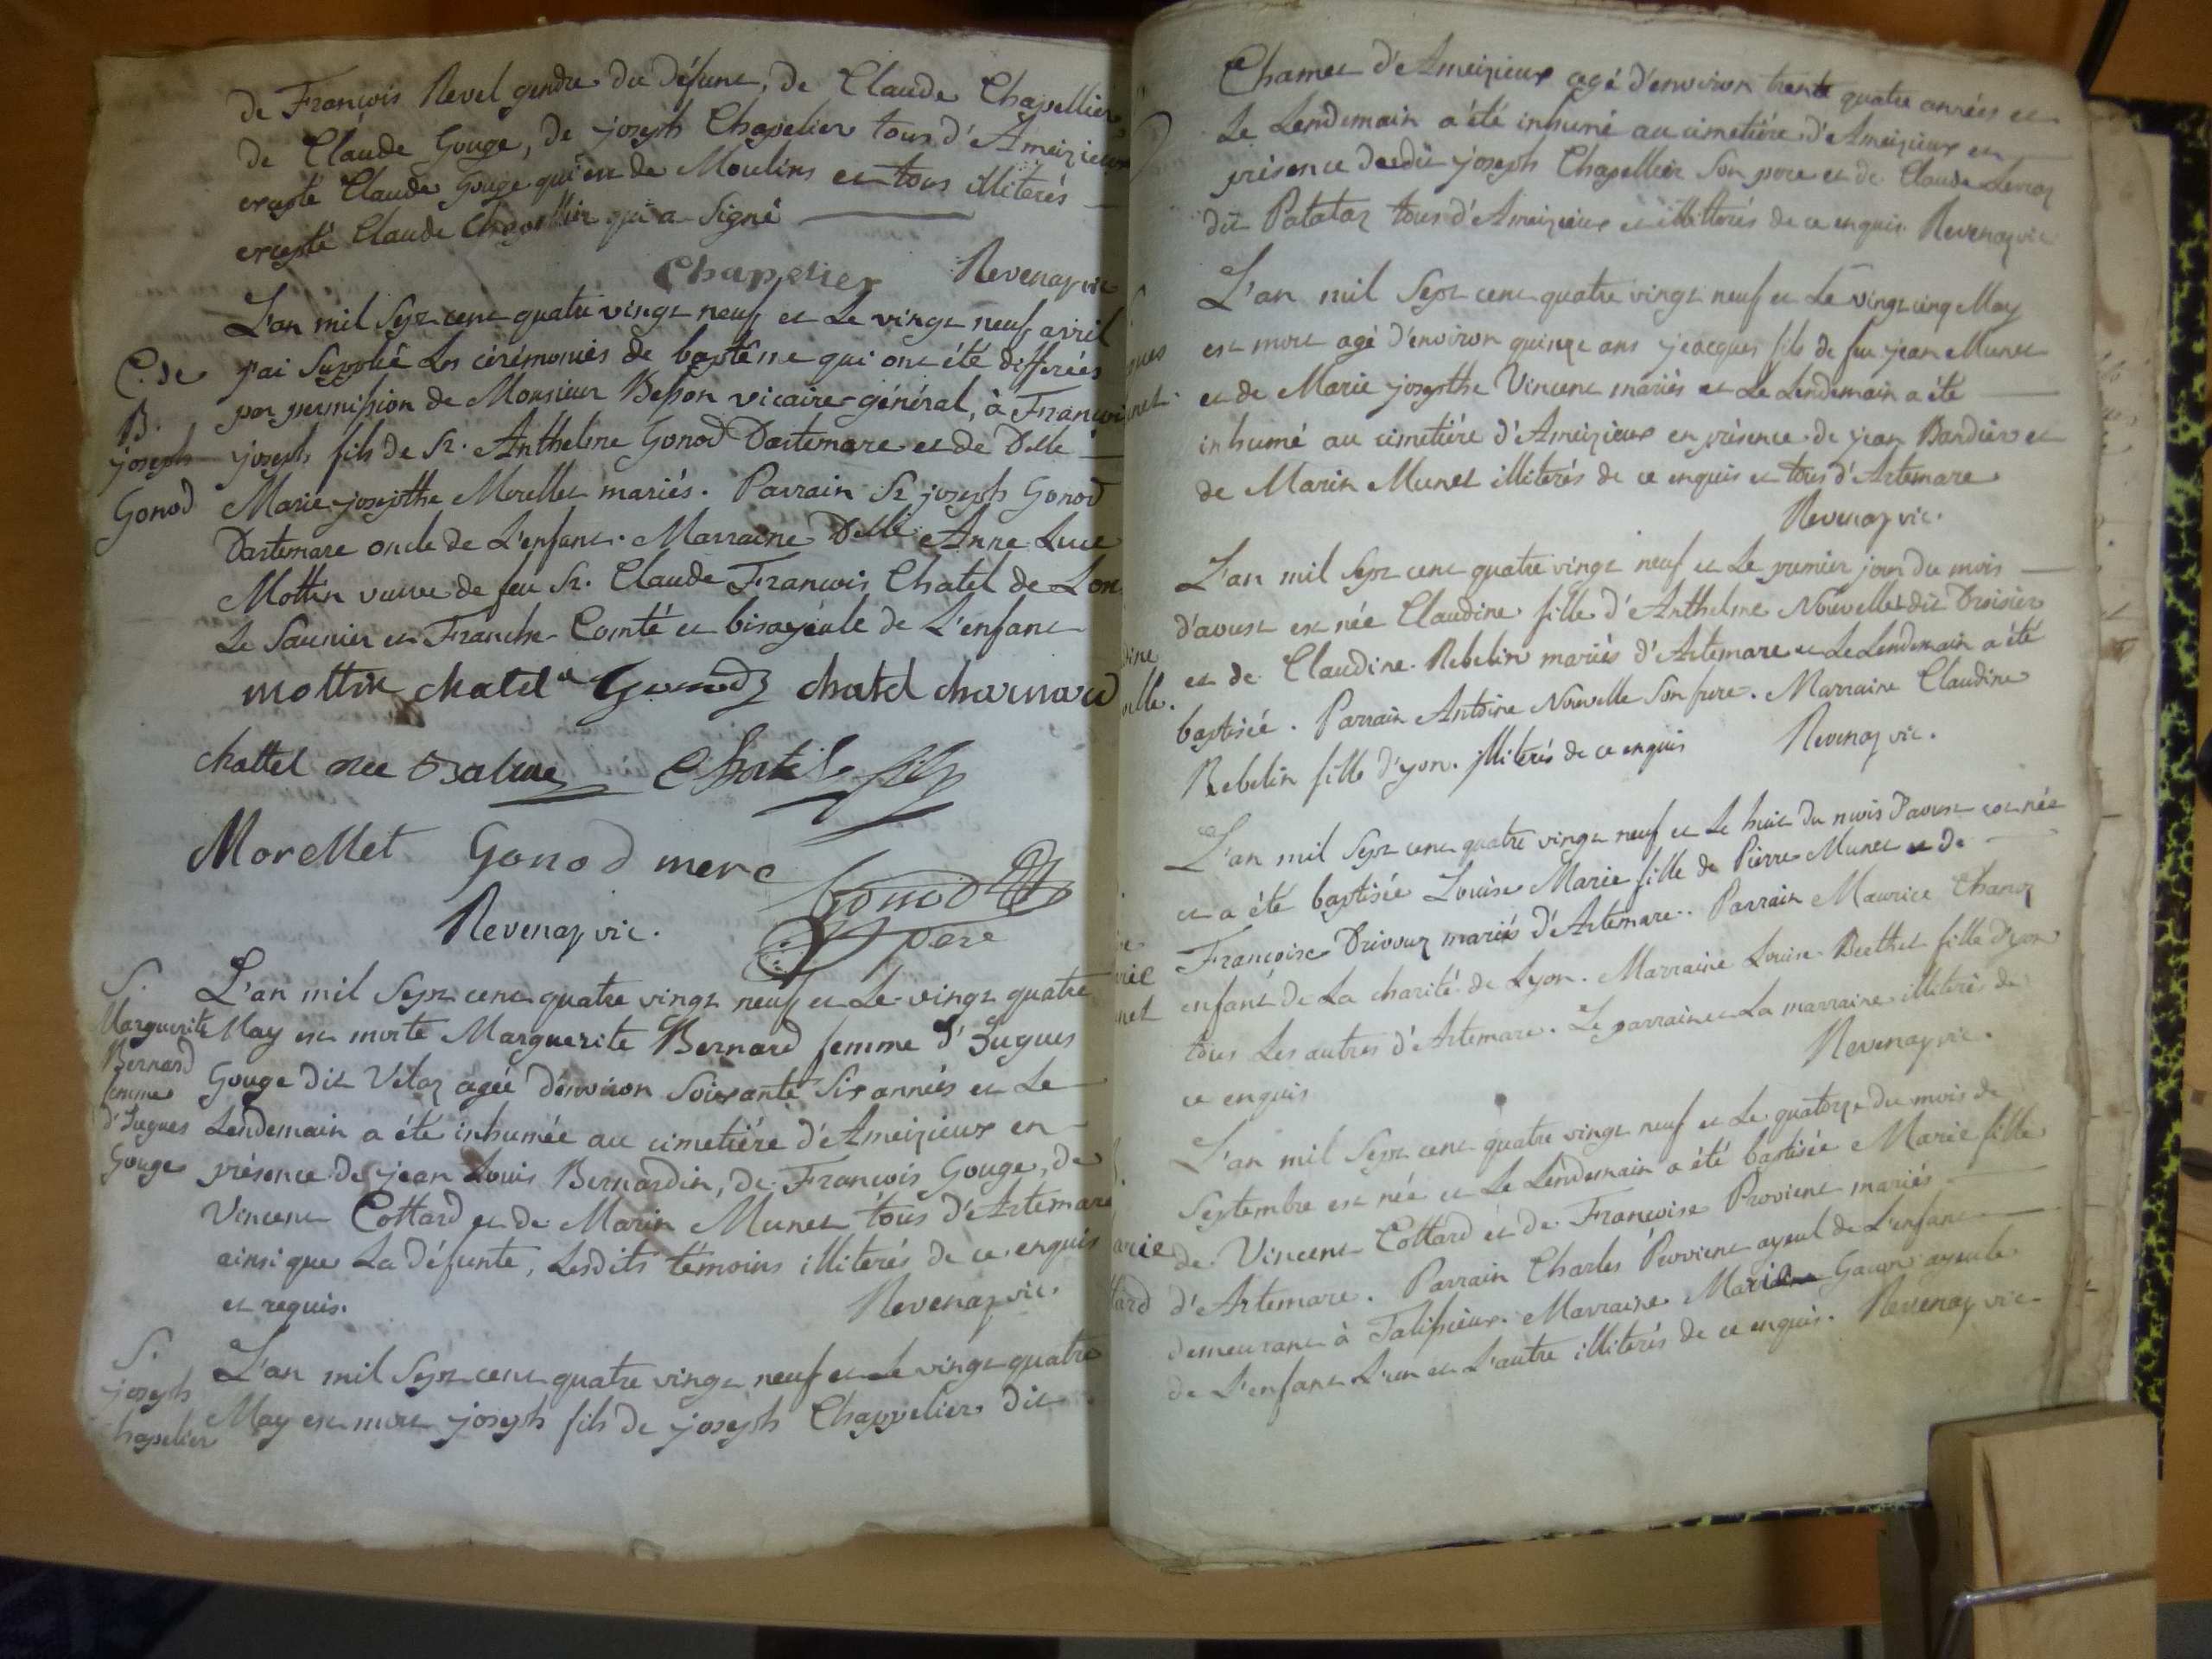 de François Revel gendre du défunt, de Claude Chapellier,
de Claude Gouge, de joseph Chapelier tous d'Ameizieux
excepté Claude Gouge qui est de Moulins et tous illiterés
excepté Claude Chapellier qui a signé
Chapelier Revenaz vic
L'an mil sept cent quatre vingt neuf et le vingt neuf avril
j'ai supplée les cérémonies de baptême qui ont été differées
par permission de Monsieur Besson vicaire-général, à François
C. de
B.
joseph
Gonod
joseph fils de Sr. Anthelme Gonod D'artemare et de Delle
Marie-josepthe Morellet mariés. Parrain Sr joseph Gonod
D'artemare oncle de L'enfant. Marraine Delle Anne Luce
Mottin veuve de feu Sr. Claude François Chatel de Lon
Le Saunier en Franche-Comté et bisayeule de L'enfant
mottin chatel Gonod chatel charnard
chattel née Balme Chatel fils
Morellet Gonod mere
Gonod
Revenaz vic. pere
S.
Marguerite
Bernard
femme
d'Hugues
Gouge
L'an mil sept cent quatre vingt neuf et Le vingt quatre
May est morte Marguerite Bernard femme d'Hugues
Gouge dit Vitoz agée d'environ soixante six années et Le
Lendemain a été inhumée au cimetiére d'Ameizieux en
présence de jean Louis Bernardin, de François Gouge, de
Vincent Cottard et de Marin Munet tous d'Artemare
ainsi que La défunte, Lesdits témoins illiterés de ce enquis
et requis. Revenaz vic.
S.
joseph
hapelier
L'an mil sept cent quatre vingt neuf et Le vingt quatre
May est mort joseph fils de joseph Chappelier dit
Chamet d'Ameizieux agé d'environ trente quatre années et
Le Lendemain a été inhumé au cimetiére d'Ameizieux en
présence dudit joseph Chapellier son pere et de Claude Levraz
dit Patataz tous d'Ameizieux et illiterés de ce enquis Revenaz vic
L'an mil sept cent quatre vingt neuf et Le vingt cinq May
est mort agé d'environ quinze ans jeacques fils de feu jean Munet
et de Marie josepthe Vincent mariés et Le Lendemain a été
inhumé au cimetiére d'Ameizieux en présence de jean Bardier et
de Marin Munet illiterés de ce enquis et tous d'Artemare
Revenaz vic.
L'an mil sept cent quatre vingt neuf et Le premier jour du mois
d'avoust est née Claudine fille d'Anthelme Nouvelle dit Droisier
et de Claudine Rebelin mariés d'Artemare et Le Lendemain a été
baptisée. Parrain Antoine Nouvelle son frere. Marraine Claudine
Rebelin fille d'yon. illiterés de ce enquis Revenaz vic.
L'an mil sept cent quatre vingt neuf et Le huit du mois d'avoust est née
et a été baptisée Louise Marie fille de Pierre Munet et de
Françoise Drivouz mariés d'Artemare. Parrain Maurice Chanoz
enfant de La charité de Lyon. Marraine Louise Berthet fille d'yon
tous Les autres d'Artemare. Le parrain et La marraine illiterés de
ce enquis Revenaz vic.
L'an mil sept cent quatre vingt neuf et Le quatorze du mois de
Septembre est née et Le Lendemain a été baptisée Marie fille
de Vincent Cottard et de Françoise Provient mariés
d'Artemare. Parrain Charles Purvient ayeul de L'enfant
demeurant à Talissieux. Marraine Marie Gacon ayeule
de L'enfant L'un et L'autre illiterés de ce enquis. Revenaz vic